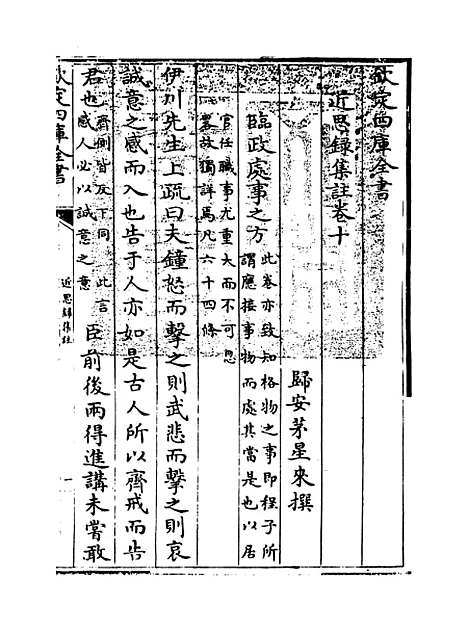 欽定四庫全書
近思録集註卷十
歸安茅星來撰
臨政處事之方
此卷亦致知格物之事即程子所
謂應接事物而處其當是也以居
官任職事尤重大而不可忽
畧故獨詳焉凡六十四條
伊川先生上疏曰夫鐘怒而擊之則武悲而擊之則哀
誠意之感而入也告于人亦如是古人所以齊戒而告
君也
齊側皆反下同 此言
感人必以誠意之意
臣前後兩得進講未嘗敢
欽定四庫全書
近思録集註
一